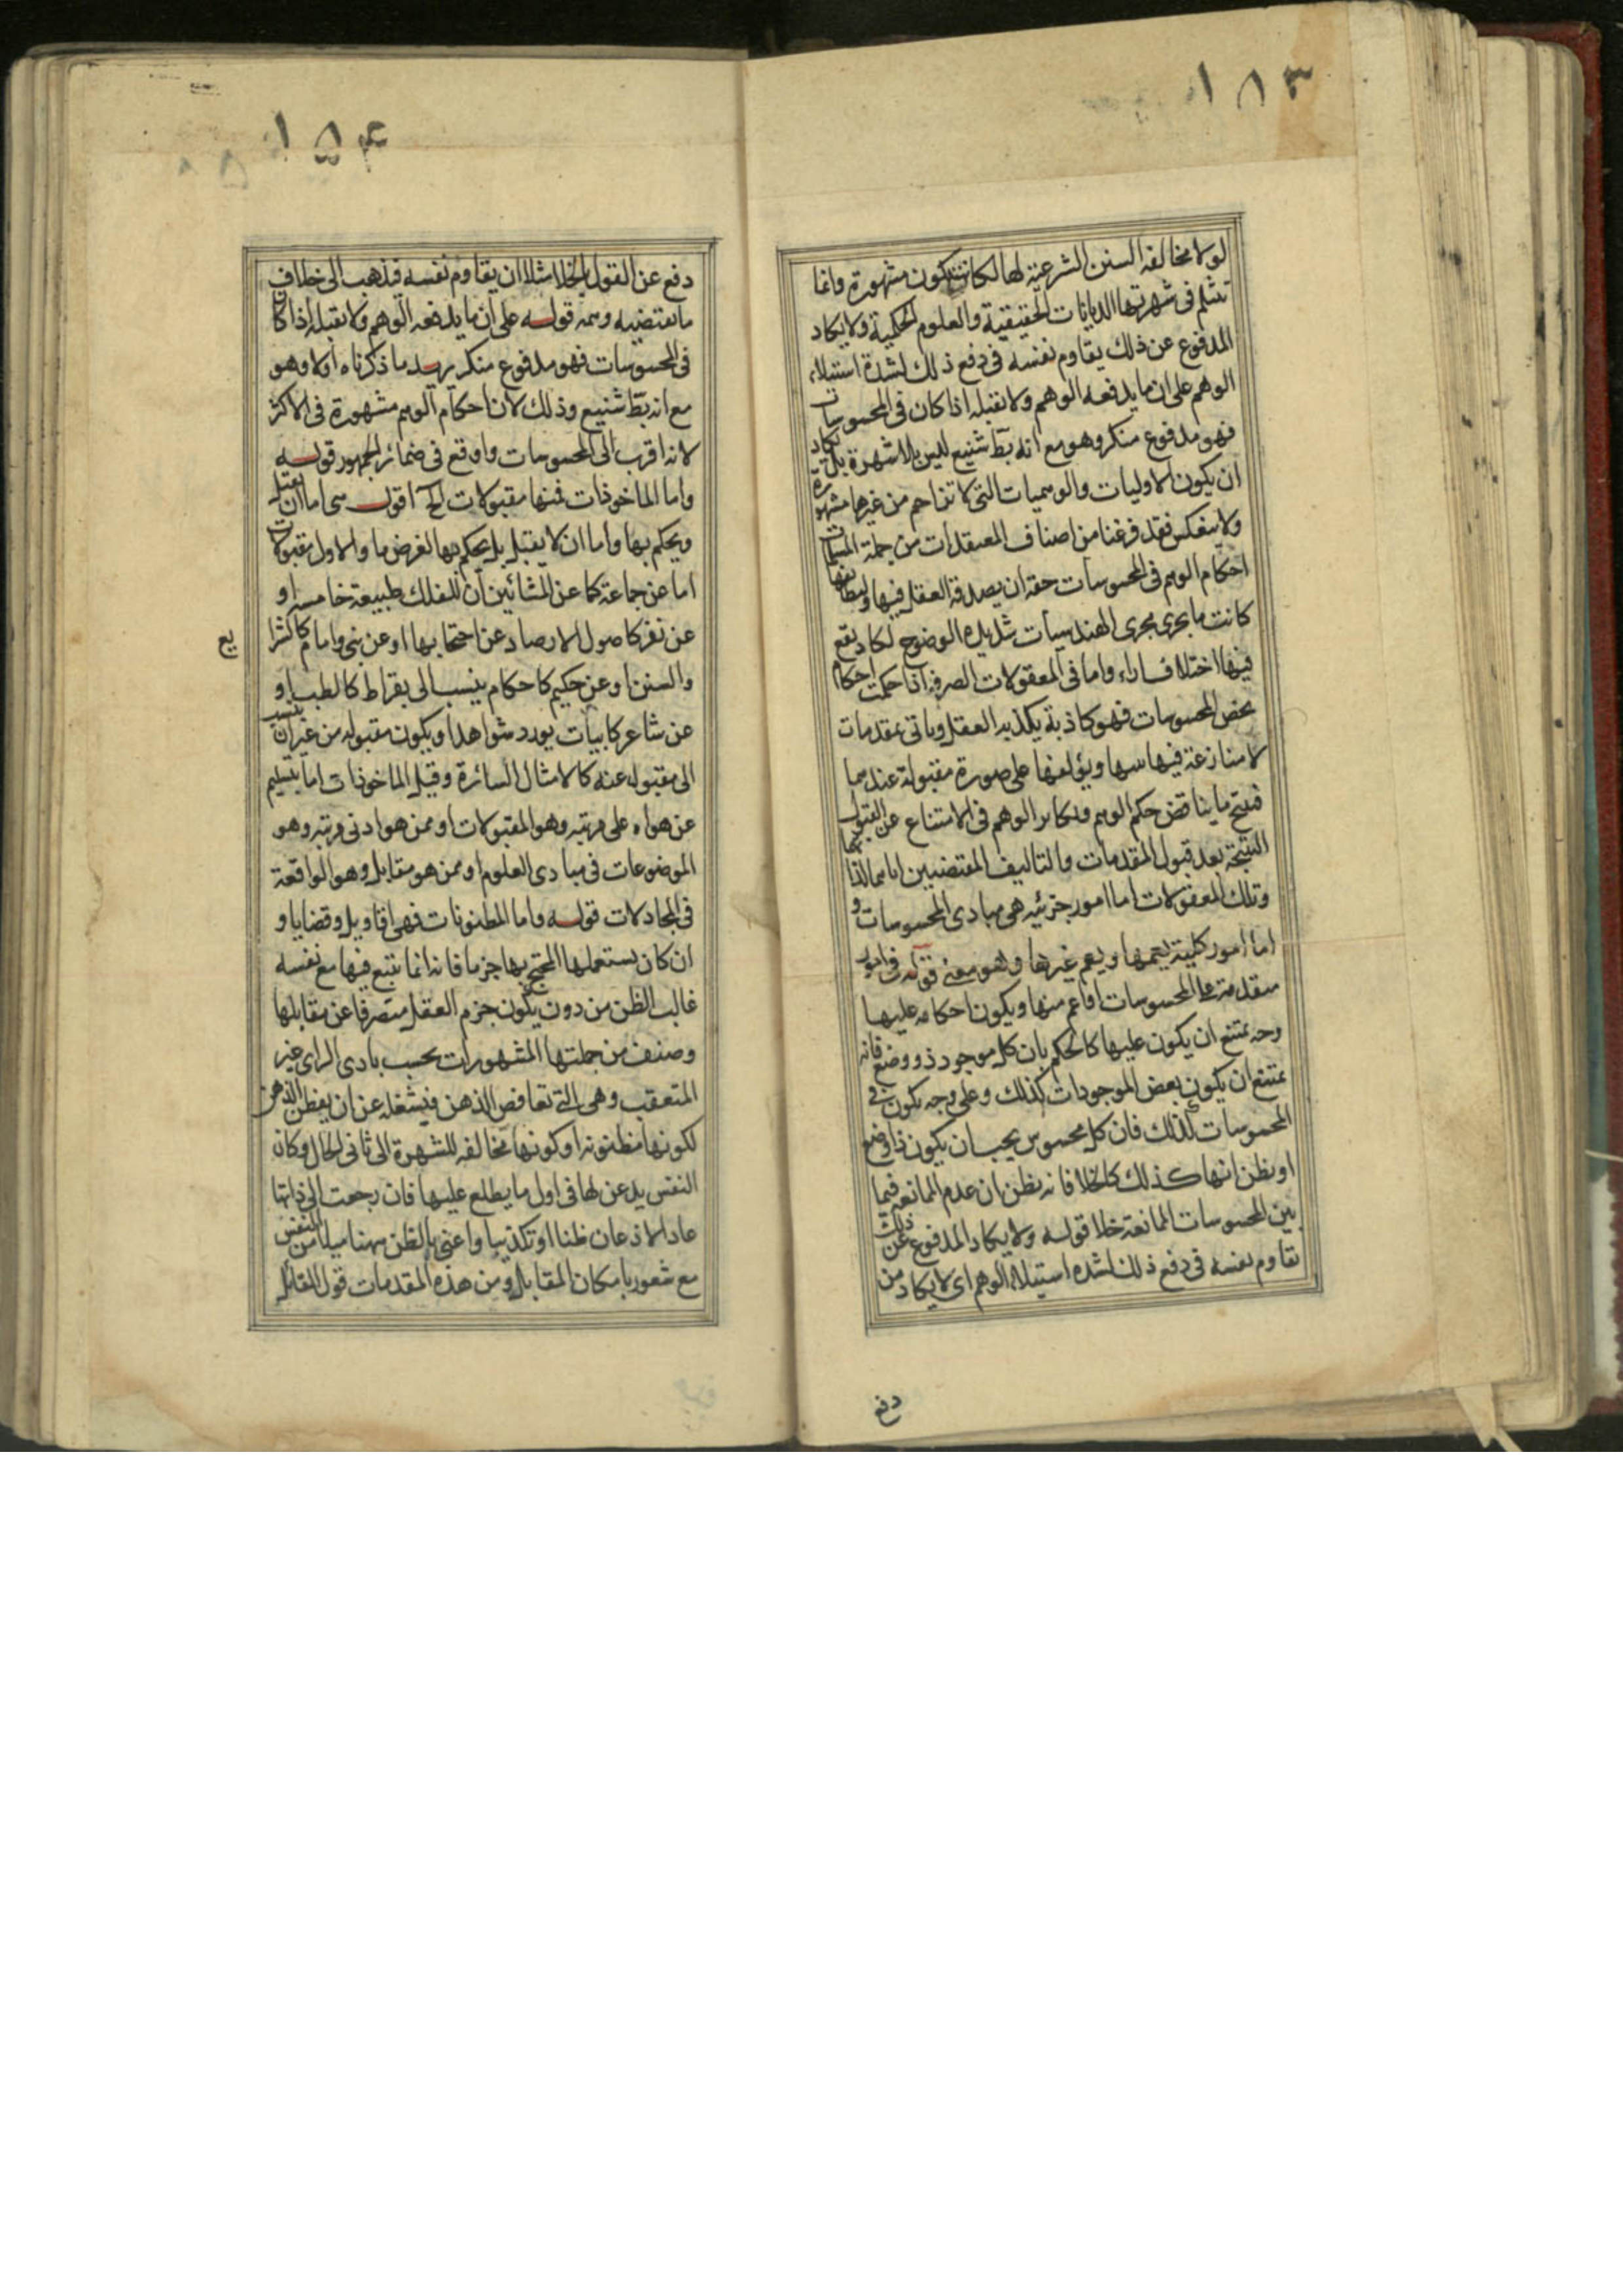 ١٥٣
لولا مخالفه السنن الشرعية لها لكانت تكون مشهورة وانما
تثلم فى شهرتها الديانات الحقيقية والعلوم الحكمية ولا يكاد
المدفوع عن ذلك يقاوم نفسه فى دفع ذلك لشدة استيلاء
الوهم على ان ما يدفعه الوهم ولا يقبله اذا كان فى المحسوسات
فهو مدفوع منكر وهو مع انه بط شنيع ليس بلا شهرة بل يكاد
ان يكون الاوليات والوهميات التى لا تزاحم من غيرها مشهورة
ولا ينعكس فقد فرغنا من اصناف المعتقدات من جملة المسلمات
احكام الوهم فى المحسوسات حقه ان يصدقه العقل فيها ولتطابقها
كانت ما يجرى مجرى الهندسيات شديدة الوضوح لا كاد يقع
فيها اختلاف اراء واما فى المعقولات الصرفه اذا حكمت احكام
بحض المحسوسات فهو كاذبة يكذبه العقل وياتى بمقدمات
لا منازعة فيها بينهما ويؤلفها على صورة مقبولة عندهما
فينتج ما يناقض حكم الوهم ويكابر الوهم فى الامتناع عن القبول
النتيجة بعد قبول المقدمات والتاليف المقتضيين اياهما لذاتها
وتلك المعقولات اما امور جزئيه هى مبادى المحسوسات و
اما امور كلية يعمها ويعم غيرها وهو معنى قوله فى امور
متقدمة على المحسوسات او اعم منها ويكون احكامه عليها
وجه يمتنع ان يكون عليها كالحكم بان كل موجود ذو وضع فانه
يمتنع ان يكون بعض الموجودات كذلك وعلى وجه يكون فى
المحسوسات كذلك فان كل محسوس يجب ان يكون ذا وضع
او يظن انها كذلك كالخلا فانه يظن ان عدم الممانعه فيما
بين المحسوسات الممانعة خلا قوله ولا يكاد المدفوع عن ذلك
يقاوم نفسه فى دفع ذلك لشده استيلاء الوهم اى لا يكاد من
دفع
١٥٤
دفع عن القول بالخلا مثلا ان يقاوم نفسه فذهب الى خلاف
ما يقتضيه وهمه قوله على ان ما يدفعه الوهم ولا يقبله اذا كان
فى المحسوسات فهو مدفوع منكر يريد ما ذكرناه اولا وهو
مع انه بط شنيع وذلك لان احكام الوهم مشهورة فى الاكثر
لانه اقرب الى المحسوسات واوقع فى ضمائر الجمهور قوله
واما الماخوذات فمنها مقبولات الخ اقول هى اما ان يقبل
ويحكم بها واما ان لا يقبل بل يحكم بها لغرض ما والاول مقبولات
اما عن جماعة كما عن المشائين ان للفلك طبيعة خامسه او
عن نفر كاصول الارصاد عن اصحابها او عن نبى وامام كالشرا
يع
والسنن او عن حكيم كاحكام ينسب الى بقراط كالطب او
عن شاعر كابيات يورد شواهد او يكون مقبوله من غير ان ينسب
الى مقبول عنه كالامثال السائرة وقيل الماخوذات اما بتسليم
عن هو اعلى مرتبه وهو المقبولات او ممن هو ادنى مرتبه وهو
الموضوعات فى مبادى العلوم او ممن هو مقابل وهو الواقعة
فى المجادلات قوله واما المظنونات فهى اقاويل وقضايا و
ان كان يستعملها المحتج بها جزما فانه انما يتبع فيها مع نفسه
غالب الظن من دون يكون جزم العقل متصرفا عن مقابلها
وصنف من جملتها المشهورات بحسب بادى الراى غير
المتعقب وهى التى تغافص الذهن فيشغله عن ان يفطن الذهن
لكونها مظنونه او كونها مخالفه للشهرة الى ثانى الحال وكان
النفس يذعن لها فى اول ما يطلع عليها فان رجعت الى ذاتها
عاد الاذعان ظنا او تكذيبا واعنى بالظن ههنا ميلا من النفس
مع شعور بامكان المقابل ومن هذه المقدمات قول القائل